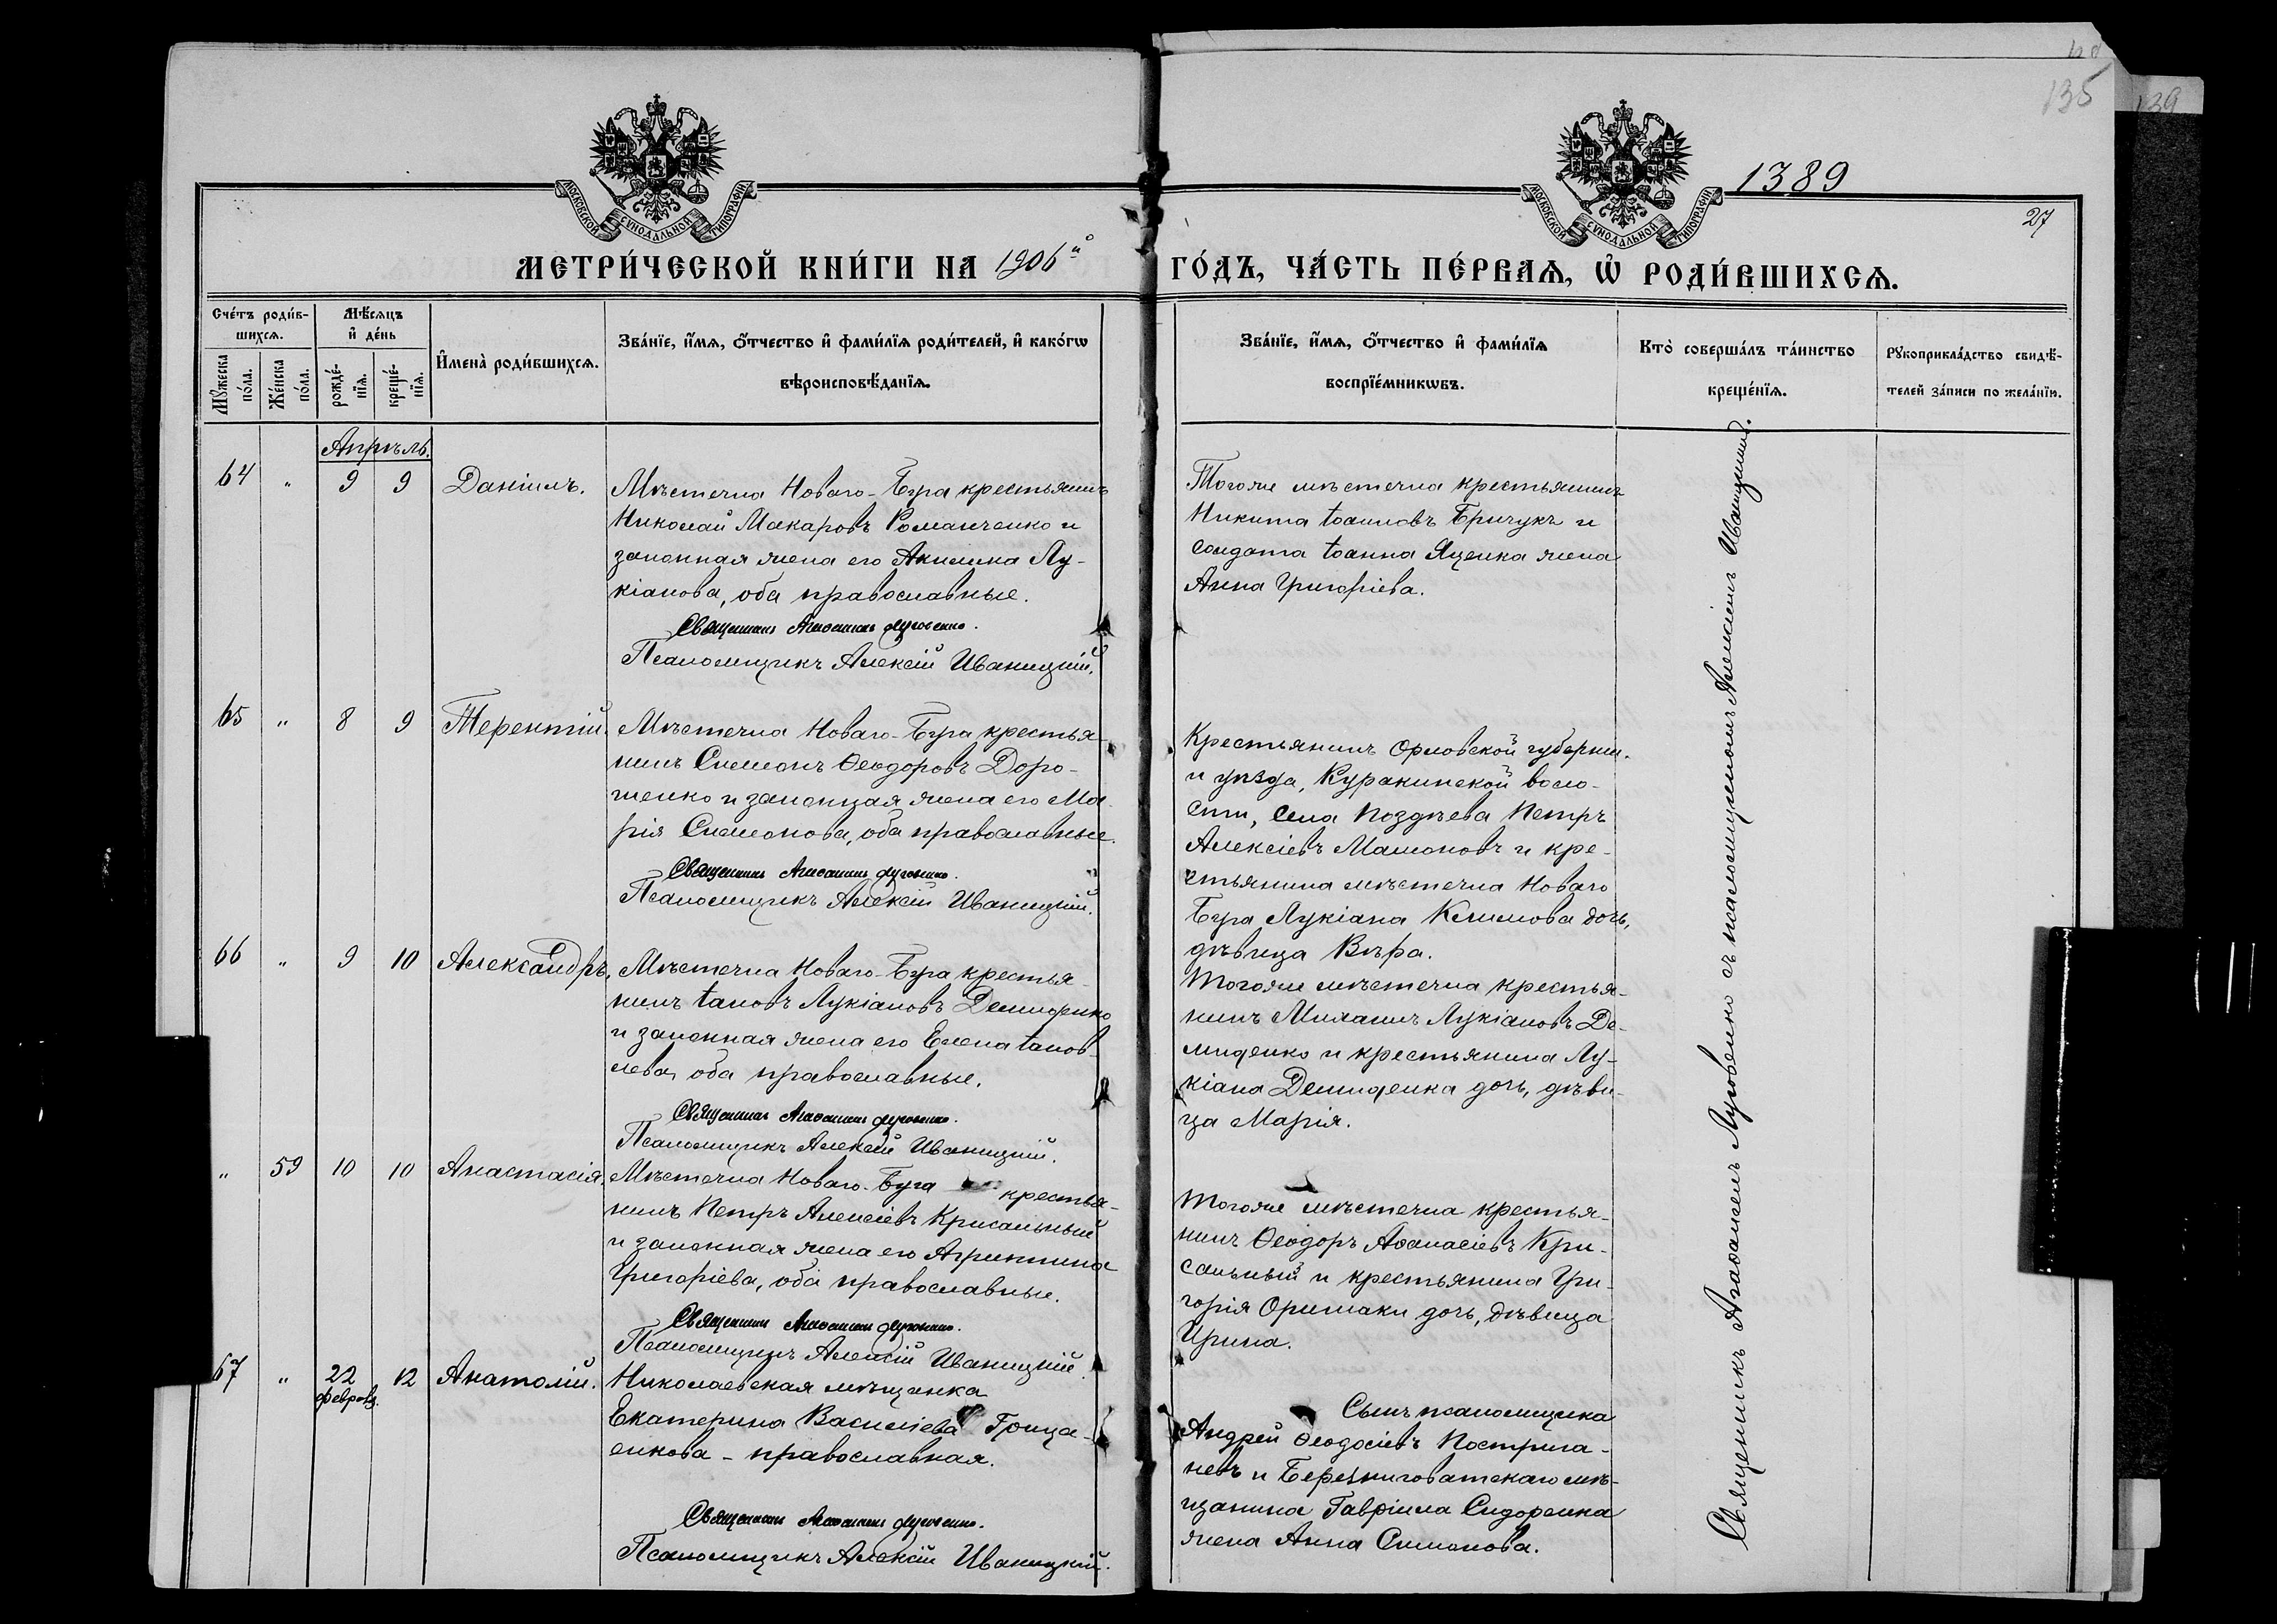 135
139
1389
27
МОСКОВСКОЙ СУНОДАЛЬНОЙ ТИПОГРАФІИ
МОСКОВСКОЙ СУНОДАЛЬНОЙ ТИПОГРАФІИ
МЕТРИ́ЧЕСКОЙ КНИ́ГИ НА 1906й
ГО́ДЪ, ЧА́СТЬ ПЕ́РВАѦ, Ѡ РОДИ́ВШИХСѦ.
Сче́тъ роди́в-
шихсѧ.
Мꙋ́жеска по́ла.
Же́нска по́ла.
Мѣ́сѧцъ
и҆ де́нь
рожде́-нїѧ.
креще́-нїѧ.
И҆мена̀ роди́вшихсѧ.
Зва́нїе, и҆́мѧ, ѻ҆́тчество и҆ фами́лїѧ роди́телей, и҆ како́гѡ
вѣроисповѣ́данїѧ.
Зва́нїе, и҆́мѧ, ѻ҆́тчество и҆ фами́лїѧ
воспрїе́мникѡвъ.
Кто̀ соверша́лъ та́инство
креще́нїѧ.
Рꙋкоприкла́дство свидѣ́-
телей за́писи по жела́нїю.
Апрѣль.
64 " 9 9 Даніилъ.
Мѣстечка Новаго-Буга крестьянинъ
Николай Макаровъ Романченко и
законная жена его Акилина Лу-
кіанова, оба православные.
Священникъ Агаѳангелъ Луговенко.
Псаломщикъ Алексій Иваницкій.
Тогоже мѣстечка крестьянинъ
Никита Іоанновъ Бричукъ и
солдата Іоанна Яценка жена
Анна Григоріева.
65 " 8 9 Терентій.
Мѣстечка Новаго-Буга крестья-
нинъ Симеонъ Ѳеодоровъ Доро-
шенко и законная жена его Ма-
рія Симеонова, оба православные.
Священникъ Агаѳангелъ Луговенко.
Псаломщикъ Алексій Иваницкій.
Крестьянинъ Орловской губерніи
и уѣзда, Куракинской воло-
сти, села Поздѣева Петръ
Алексіевъ Мамоновъ и кре-
стьянина мѣстечка Новаго
Буга Лукіана Климова дочь,
дѣвица Вѣра.
66 " 9 10 Александръ.
Мѣстечка Новаго-Буга крестья-
нинъ Іаковъ Лукіановъ Демиденко
и законная жена его Елена Іаков-
лева, оба православные.
Священникъ Агаѳангелъ Луговенко.
Псаломщикъ Алексій Иваницкій.
Тогоже мѣстечка крестья-
нинъ Михаилъ Лукіановъ Де-
миденко и крестьянина Лу-
кіана Демиденка дочь, дѣви-
ца Марія.
" 59 10 10 Анастасія.
Мѣстечка Новаго-Буга крестья-
нинъ Петръ Алексіевъ Крисальный
и законная жена его Агриппина
Григоріева, оба православные.
Священникъ Агаѳангелъ Луговенко.
Псаломщикъ Алексій Иваницкій.
Тогоже мѣстечка крестья-
нинъ Ѳеодоръ Аѳанасіевъ Кри-
сальный и крестьянина Гри-
горія Оришаки дочь, дѣвица
Ирина.
67 " 22 12 Анатолій.
февраля.
Николаевская мѣщанка
Екатерина Василіева Гоица-
енкова - православная.
Священникъ Агаѳангелъ Луговенко.
Псаломщикъ Алексій Иваницкій.
Сынъ псаломщика
Андрей Ѳеодосіевъ Пострига-
невъ и Березниговатскаго мѣ-
щанина Гавріила Сидоренка
жена Анна Симонова.
Священникъ Агаѳангелъ Луговенко съ псаломщикомъ Алексіемъ Иваницкимъ.